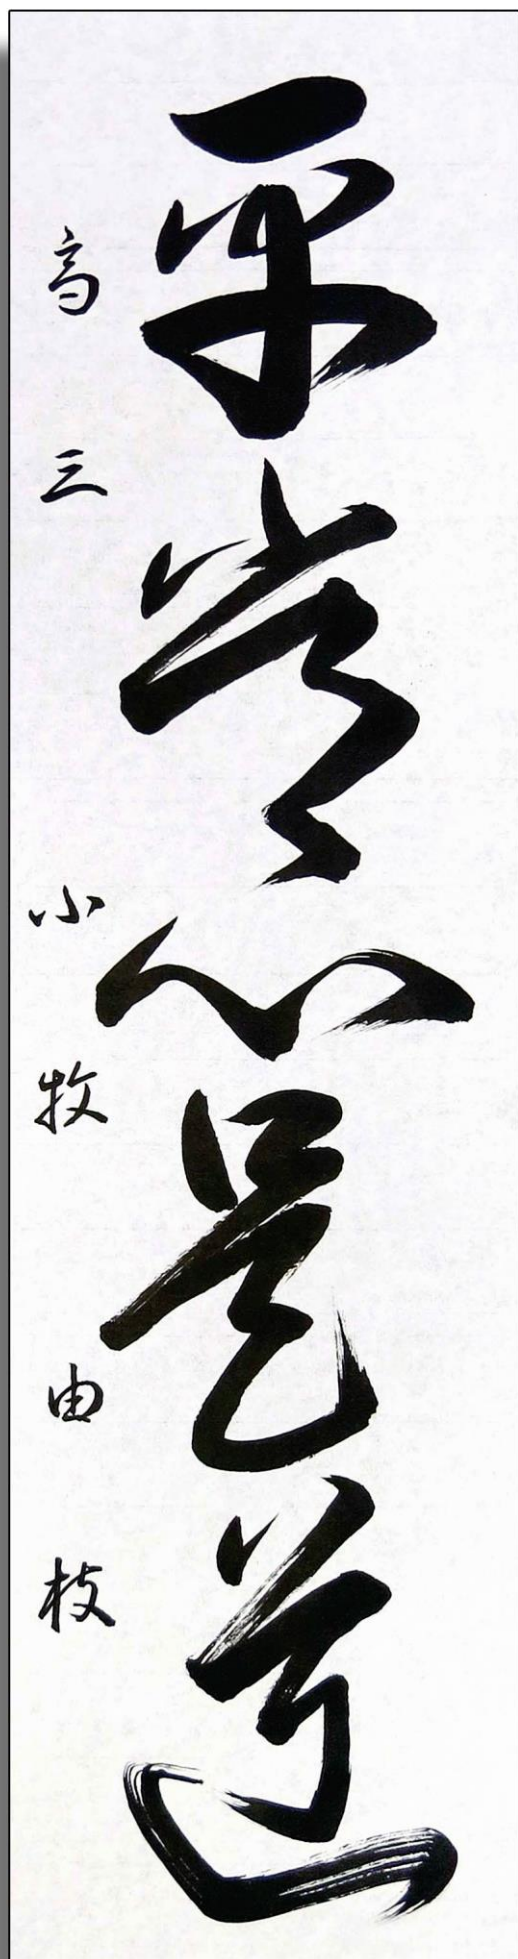 平常心是道
高三 小牧由枝